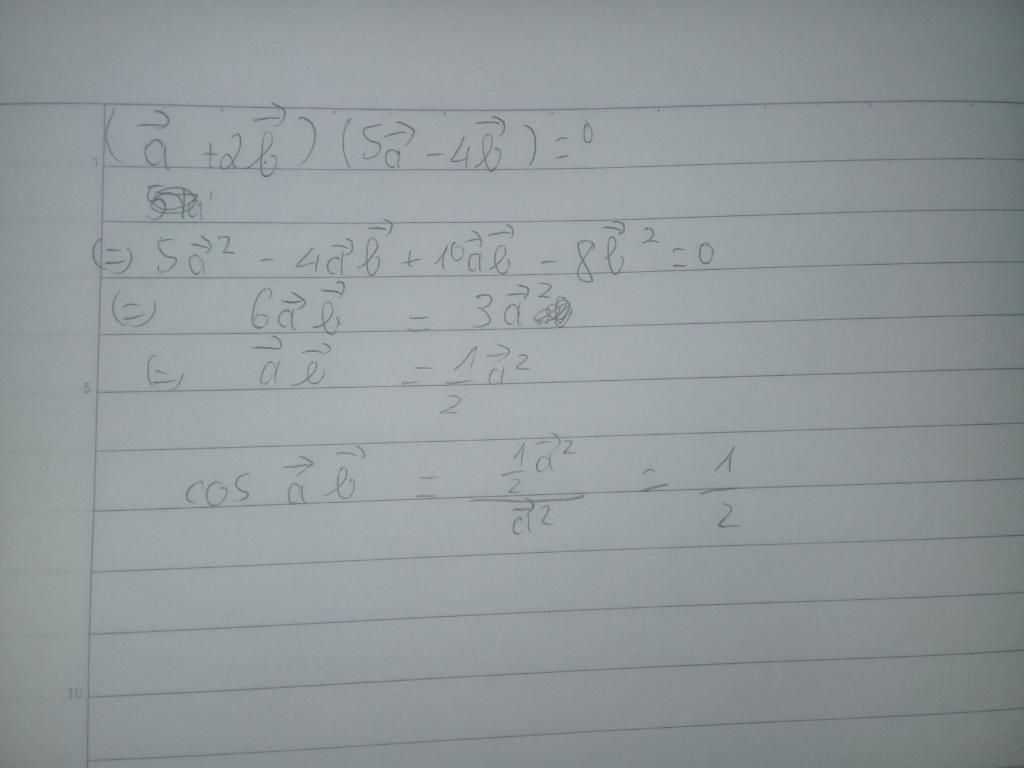 (a⃗ + 2b⃗) (5a⃗ - 4b⃗) = 0
(=) 5a⃗² - 4a⃗b⃗ + 10a⃗b⃗ - 8b⃗² = 0
(=) 6a⃗b⃗ = 3a⃗²
(=) a⃗b⃗ = 1/2 a⃗²
5
cos a⃗b⃗ = (1/2 a⃗²)/a⃗² = 1/2
10